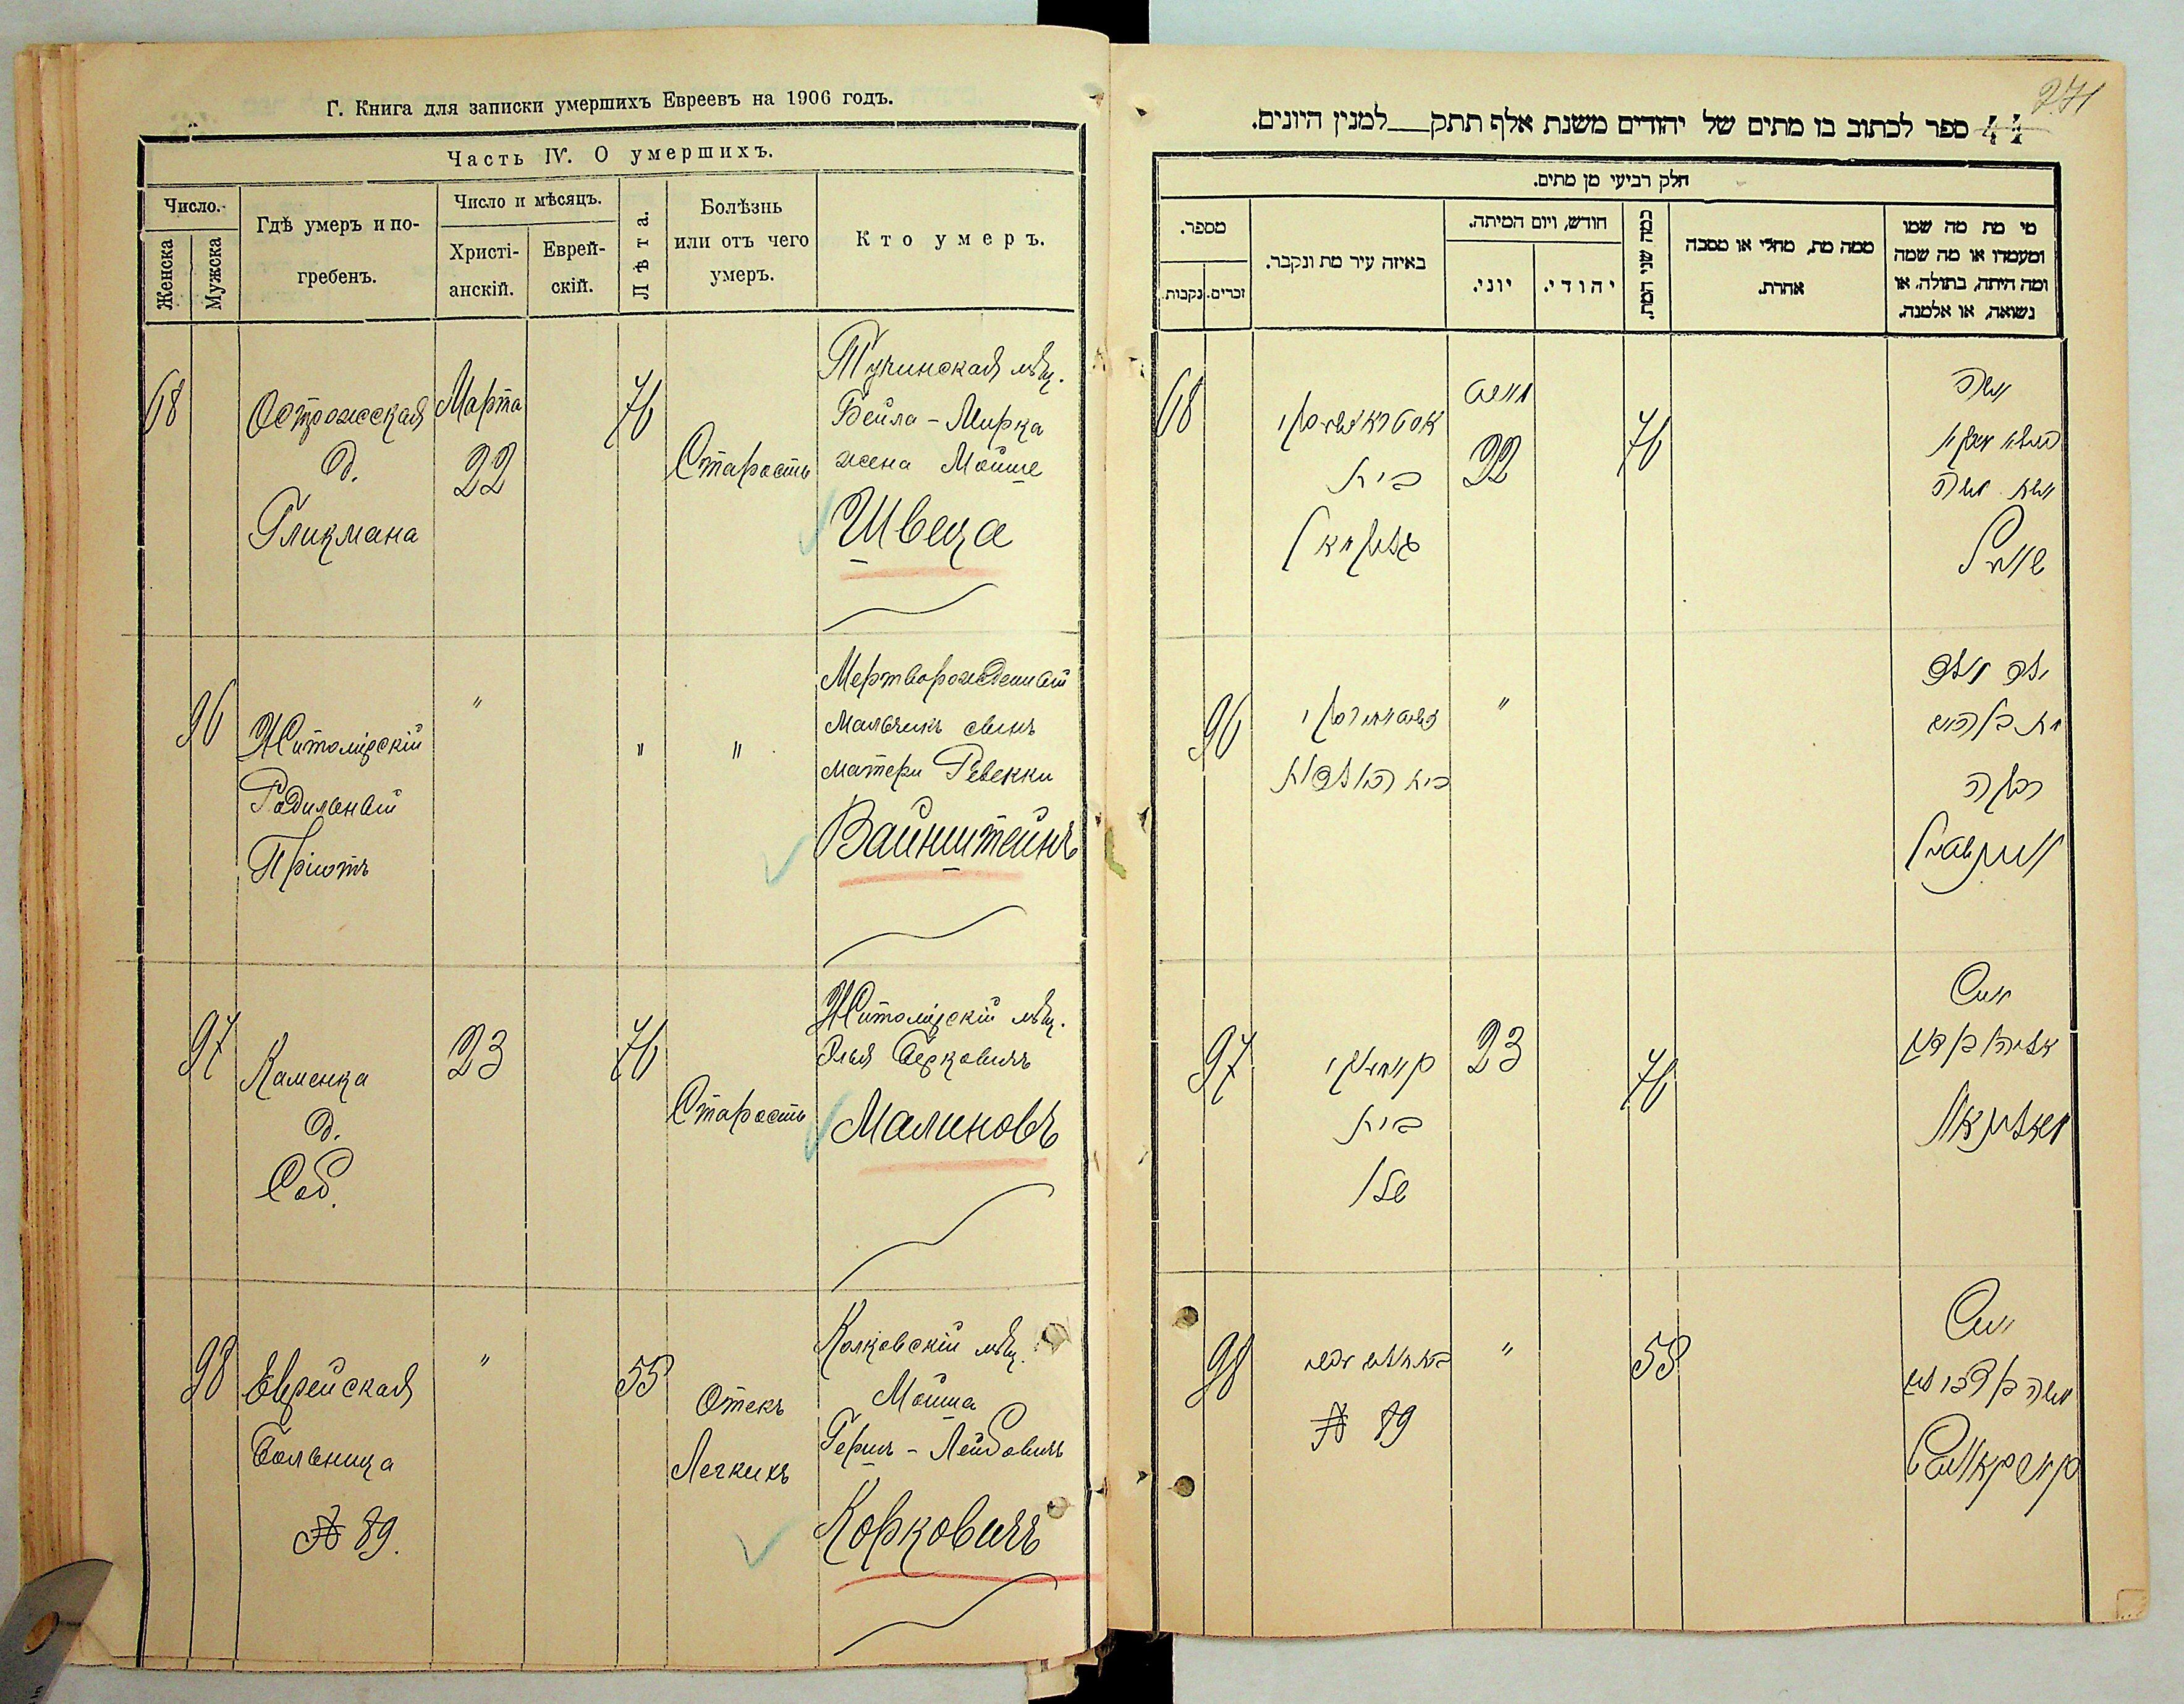 Г. Книга для записки умершихъ Евреевъ на 1906 годъ.
Часть IV. О умершихъ.
Число.
Женска
Мужска
Гдѣ умеръ и по-
гребенъ.
Число и мѣсяцъ.
Христі-
анскій.
Еврей-
скій.
Лѣта.
Болѣзнь
или отъ чего
умеръ.
Кто умеръ.
68
Острожская
д.
Гликмана
Марта
22
76
Старость
Тучинская мѣщ.
Бейла - Мирка
жена Мойше
Швеца
96
Житомірскій
Родильный
Пріютъ
"
"
"
Мертворожденный
мальчикъ сынъ
матери Ревекки
Вайнштейнъ
97
Каменка
д.
Соб.
23
76
Старость
Житомірскій мѣщ.
Элья Берковичъ
Малиновъ
98
Еврейская
больница
№ 89.
"
55
Отекъ
Легкихъ
Колковскій мѣщ.
Мойша
Герш - Лейбовичъ
Корковичъ
271
44 ספר לכתוב בו מתים של יהודים משנת אלף תתק למנין היונים.
חלק רביעי מן מתים.
מספר.
זכרים.
נקבות.
באיזה עיר מת ונקבר.
חודש, ויום המיתה.
יוני.
יהודי.
כמה שני המת.
ממה מת, מחלי או מסבה
אחרת.
מי מת מה שמו
ומעמדו או מה שמה
ומה היתה, בתולה, או
נשואה, או אלמנה.
68
בית
גליקמאן
מארט
22
76
אשה
ביילא מירקא
אשת משה
שוועץ
96
זיטאמירסקי
"
ילד
רבקה
וויינשטיין
97
בית
שלו
23
76
מת
מאלינאוו
98
№ 89
"
55
מת